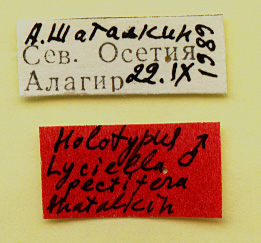 А.Шаталкин
Сев. Осетия
Алагир 22.IX
1989
Holotypus ♂
Lyciella
pectifera
Shatalkin